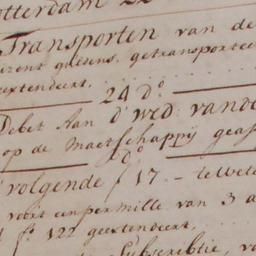 otterdam 22
Transporten van de
getransporteer
geextendeert.
24 Do
Debet Aan d' Wed: vande
op de Maetschappij geas
Do
volgende f 17 - te wete
voort een per mille van 3 a
f 122 geextendeert,
Subscribtie, v